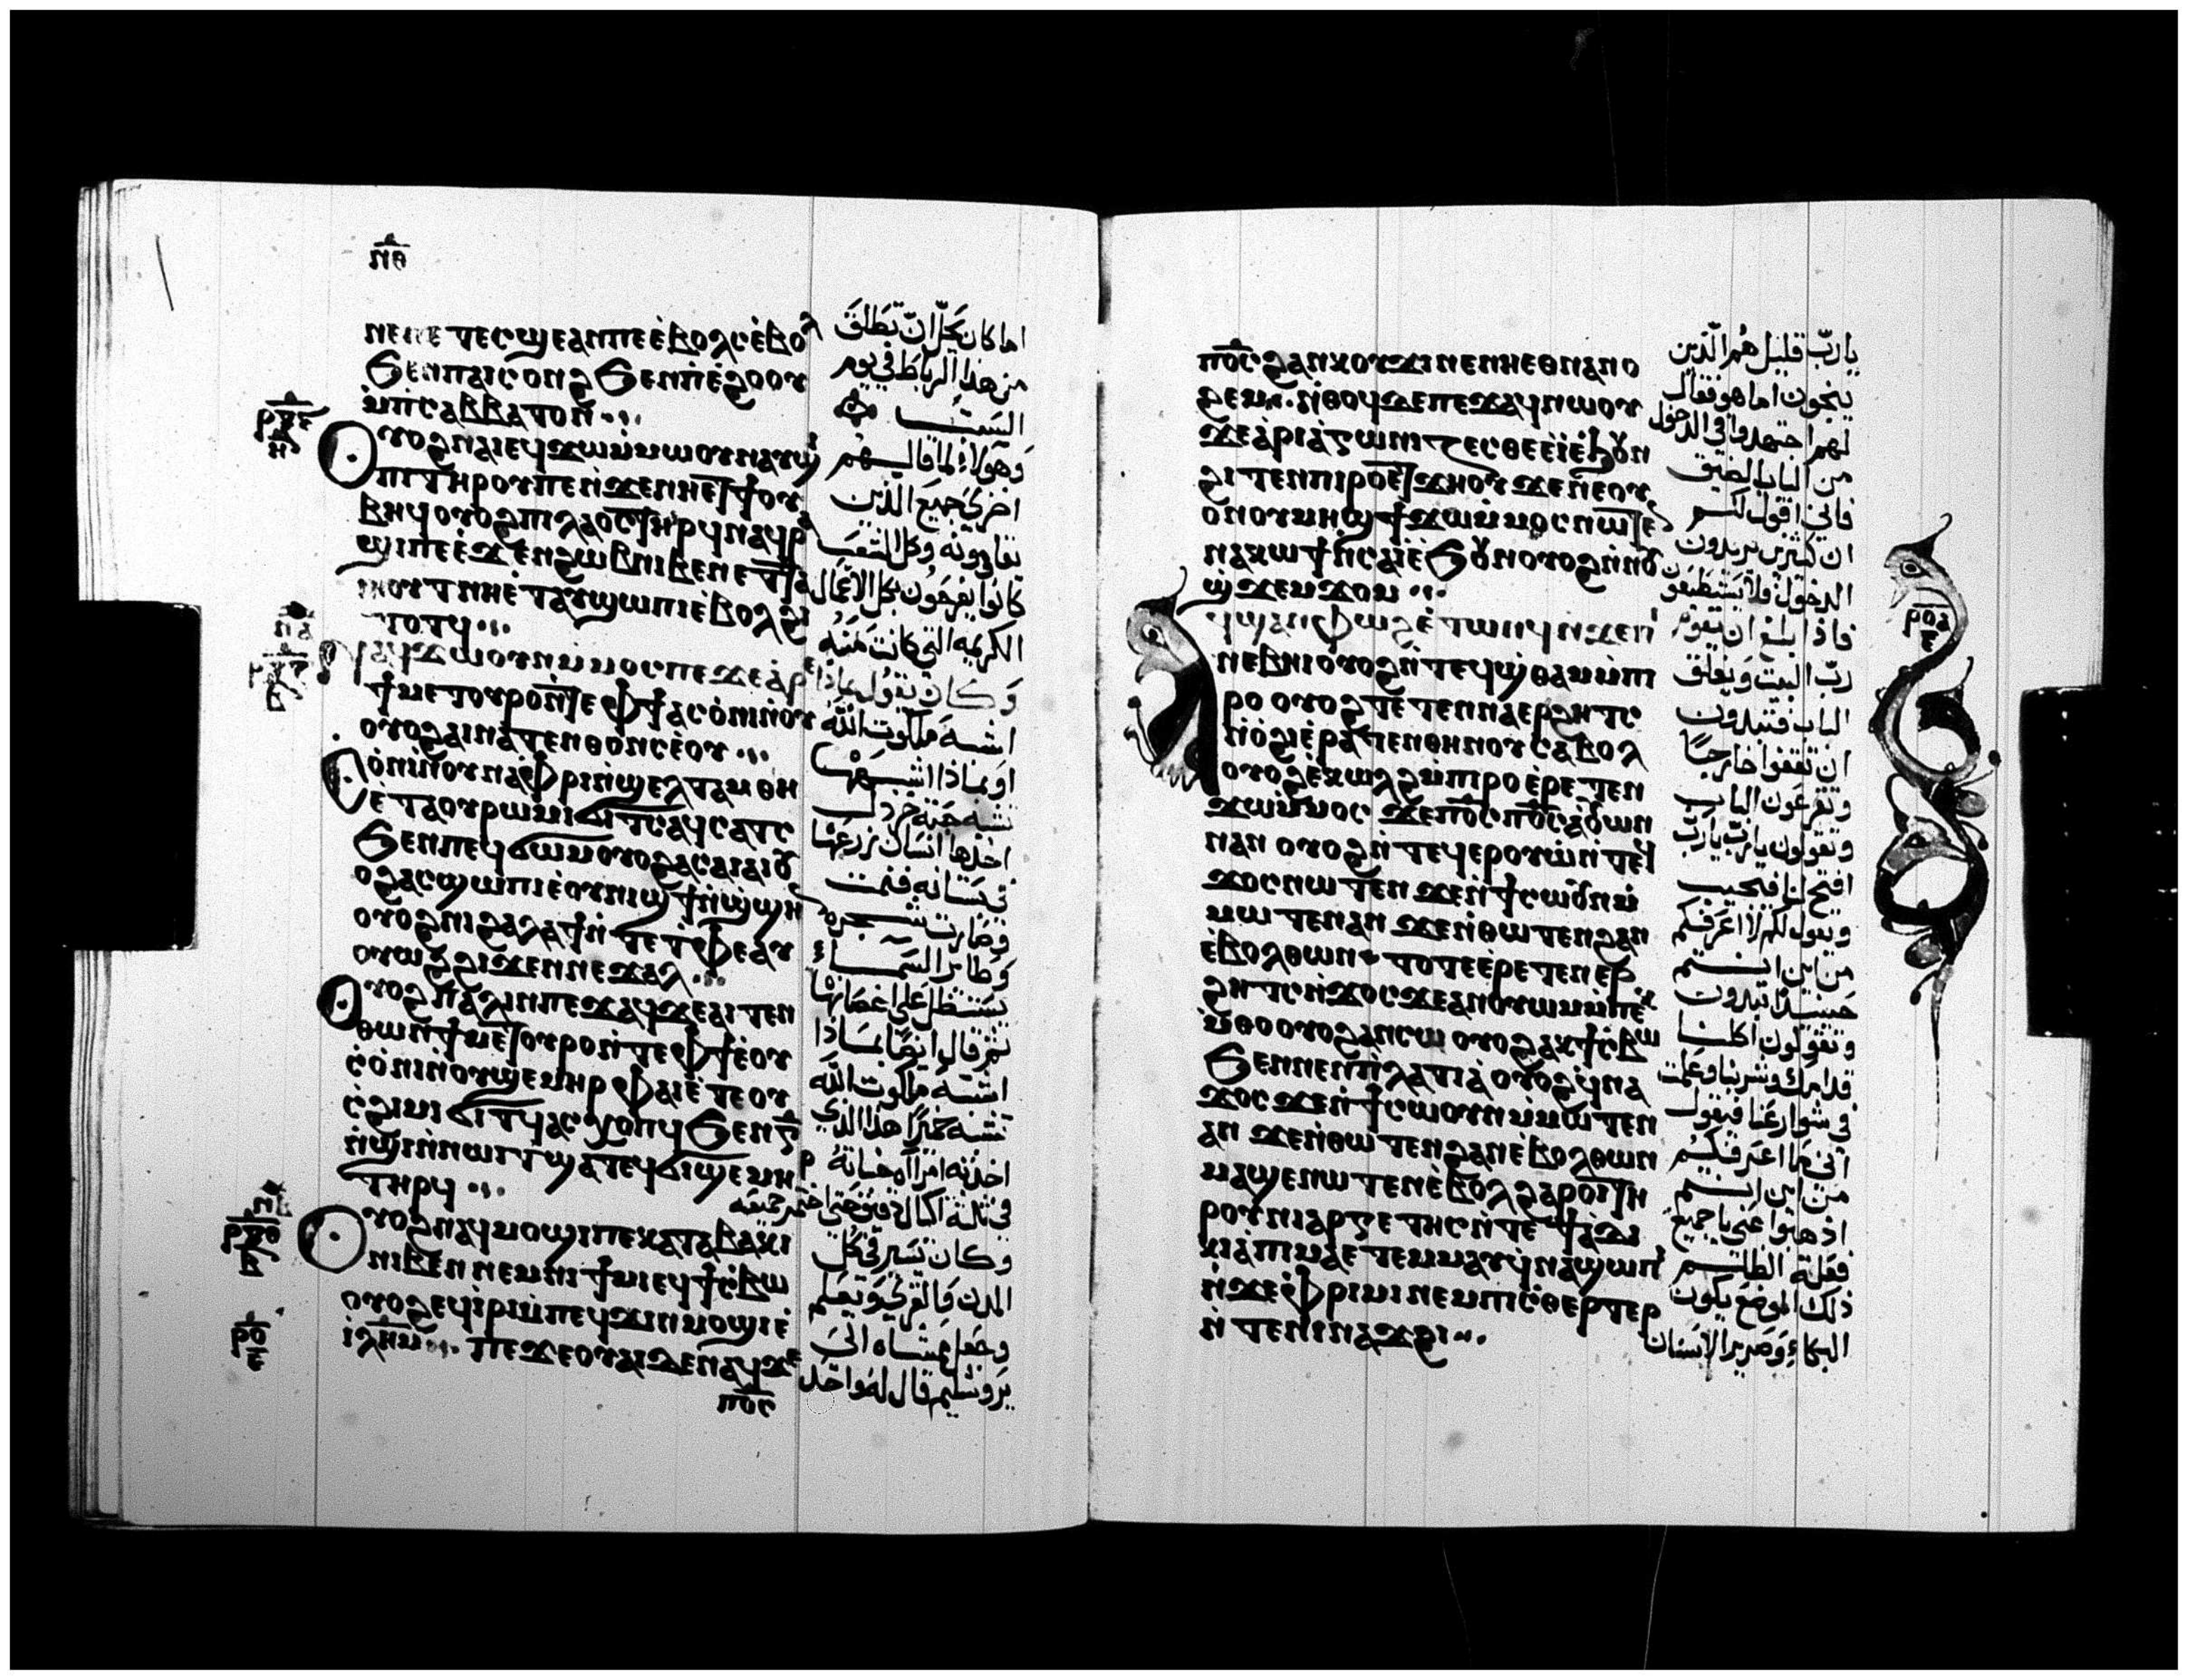 ⲡⲑ
ⲛⲉⲛⲉ ⲧⲉⲥϣⲉⲁⲛⲡⲉⲉ̀ⲃⲟⲗⲥⲉ̀ⲃⲟⲗ
ϧⲉⲛⲡⲁⲓⲥⲟⲛϩ ϧⲉⲛⲡⲉ̀ϩⲟⲟⲩ
ⲙ̀ⲡⲥⲁⲃⲃⲁⲧⲟⲛ
ⲟⲩⲟϩⲛⲁⲓⲉϥϫⲱⲙ̀ⲙⲱⲟⲩⲛⲁⲩϣⲓ
ⲡⲓⲧⲏⲣⲟⲩⲡⲉⲛ̀ϫⲉⲛⲏⲉⲧϯⲟⲩ
ⲃⲏϥⲟⲩⲟϩⲡⲓⲗⲁⲟⲥⲧⲏⲣϥⲛⲁϥⲣⲁ
ϣⲓⲡⲉⲉ̀ϫⲉⲛϩⲱⲃⲛⲓⲃⲉⲛⲉⲧⲧⲁ
ⲓⲏⲟⲩⲧⲛⲏⲉ̀ⲧⲁⲩϣⲱⲡⲓⲉ̀ⲃⲟⲗϩⲓ
ⲧⲟⲧϥ
ⲛⲁϥϫⲱⲟⲩⲛⲙ̀ⲙⲟⲥⲡⲉϫⲉⲁⲣⲉ
ϯⲙⲉⲧⲟⲩⲣⲟⲛ̀ⲧⲉⲫϯⲁⲥⲟ̀ⲛⲓⲛ̀ⲟⲩ
ⲟⲩⲟϩⲁⲓⲛⲁⲧⲉⲛⲑⲟⲛⲥⲉ̀ⲟⲩ
ⲥⲟ̀ⲛⲓⲛ̀ⲟⲩⲛⲁⲫⲣⲓⲛ̀ϣⲉⲗⲧⲁⲙ ⲑⲏ
ⲉ̀ⲧⲁⲟⲩⲣⲱⲙⲓϭⲓⲧⲥⲁϥⲥⲁⲧⲥ
ϧⲉⲛⲡⲉϥϭⲱⲙⲟⲩⲟϩⲁⲥⲁⲓⲁⲓⲟⲩ
ⲟϩⲁⲥϣⲱⲡⲓⲉ̀ⲟⲩⲛⲓϣϯⲛ̀ϣ̀ϣⲏⲛ
ⲟⲩⲟϩⲛⲓϩⲁⲗⲁϯⲛ̀ⲧⲉⲧ̀ⲫⲉⲁⲩ
ⲟⲩⲱϩϩⲓϫⲉⲛⲛⲉϫⲁⲗ
ⲟⲩⲟϩⲡⲁⲗⲓⲛⲡⲉϫⲁϥϫⲉⲁⲓⲧⲉⲛ
ⲑⲱⲛϯⲙⲉⲧⲟⲩⲣⲟⲛ̀ⲧⲉⲫϯⲉ̀ⲟⲩ
ⲥ̀ⲟ̀ⲛⲓⲛ̀ⲟⲩϣⲉⲙⲏⲣ ⲫⲁⲓⲉ̀ⲧⲉⲟⲩ
ⲥ̀ϩⲓⲙⲓ ϭⲓⲧϥⲁⲥⲭⲟⲡϥϧⲉⲛⲅ̅
ⲛ̀ϣⲓⲛ̀ⲛⲱⲓⲧϣⲁⲧⲉϥϭⲓϣⲉⲙⲏⲣ
ⲧⲏⲣϥ
ⲟⲩⲟϩⲛⲁϥⲙⲟϣⲓⲡⲉⲕⲁⲧⲁⲃⲁⲕⲓ
ⲛⲓⲃⲉⲛ ⲛⲉⲙⲛⲓϯⲙⲓⲉϥϯⲥ̀ⲃⲱ
ⲟⲩⲟϩⲉϥⲓ̀ⲣⲓⲙ̀ⲡⲉϥϫⲓⲛⲙⲟϣⲓⲉ̀
ⲓ̅ⲗ̅ⲏ̅ⲙ̅ ⲡⲉϫⲉⲟⲩⲁⲓⲇⲉⲛⲁϥϫⲉ
ⲡⲟ̅ⲥ̅
اما كان يحل ان تطلق
من هذا الرباط في يوم
السبت
وهولاء لما قالهم
اخزي جميع الذين
تقاومونه وكل الشعب
كانوا يفرحون بكل الاعمال
الكريمه التي كانت منه
وكان يقول بماذا
اشبه ملكوت الله
او بماذا اشبهها
تشبه حبة خردل
اخذها انسان زرعها
في بستانه فنمت
وصارت شجره
وطاير السماء
يستظل على اغصانها
ثم قال ايضا بماذا
اشبه ملكوت الله
تشبه خميرا هذا الذي
اخذته امراه خباته
في ثلثة اكيال دقيق حتى اختمر جميعه
وكان يسير في كل
المدن والقرى ويعلم
وجعل مشاه الى
يروشليم قال له واحد
ⲡⲟ̅ⲥ̅ϩⲁⲛⲕⲟⲩϫⲓⲛⲉⲛⲏⲉⲑⲛⲁⲛⲟ
ϩⲉⲙ ⲛ̀ⲑⲟϥⲇⲉⲡⲉϫⲁϥⲛⲱⲟⲩ
ϫⲉⲁ̀ⲣⲓⲁ̀ⲅⲱⲛⲓⲍⲉⲥⲑⲉⲉ̀ⲓⲉ̀ϧⲟⲩⲛ
ϩⲓⲧⲉⲛⲡⲓⲣⲟⲉⲧϫⲏⲟⲩ ϫⲉⲛ̀ⲉⲟⲩ
ⲟⲛⲟⲩⲙⲏϣϯϫⲱⲙ̀ⲙⲟⲥⲛⲱⲧⲉⲛ
ⲛⲁⲕⲱϯⲛ̀ⲥⲁⲓ̀ⲉ̀ϧⲟⲩⲛⲟⲩⲟϩⲛ̀ⲛⲟⲩ
ϣ̀ϫⲉⲙϫⲟⲙ
ⲁϥϣⲁⲛⲫⲱϩⲉ̀ⲧⲱⲛϥⲛ̀ϫⲉⲡⲓ
ⲛⲉⲃⲏⲓⲟⲩⲟϩⲛ̀ⲧⲉϥϣ̀ⲑⲁⲙⲙ̀ⲡⲓ
ⲣⲟ ⲟⲩⲟϩⲧⲉⲧⲉⲛⲛⲁⲉⲣϩⲏⲧⲥ
ⲛ̀ⲟ̀ϩⲓⲉ̀ⲣⲁⲧⲉⲛⲑⲏⲛⲟⲩⲥⲁⲃⲟⲗ
ⲟⲩⲟϩⲉ̀ⲕⲱⲗϩⲙ̀ⲡⲓⲣⲟⲉ̀ⲣⲉⲧⲉⲛ
ϫⲱⲙ̀ⲙⲟⲥ ϫⲉⲡⲟ̅ⲥ̅ⲡⲟ̅ⲥ̅ⲁ̀ⲟⲩⲱⲛ
ⲛⲁⲛ ⲟⲩⲟϩⲛ̀ⲧⲉϥⲉⲣⲟⲩⲱ̀ⲛ̀ⲧⲉϥ
ϫⲟⲥⲛⲱⲧⲉⲛ ϫⲉⲛ̀ϯⲥⲱⲟⲩⲛⲙ̀
ⲙⲱⲧⲉⲛⲁⲛ ϫⲉⲛ̀ⲑⲱⲧⲉⲛϩⲁⲛ
ⲉ̀ⲃⲟⲗⲑⲱⲛ ⲧⲟⲧⲉⲉ̀ⲣⲉⲧⲉⲛⲉⲣ
ϩⲏⲧⲥⲛ̀ϫⲟⲥ ϫⲉⲁⲛⲟⲩⲱⲙⲙ̀ⲡⲉⲕ
ⲙ̀ⲑⲟⲟⲩⲟϩⲁⲛⲥⲱ ⲟⲩⲟϩⲁⲕϯⲥ̀ⲃⲱ
ϧⲉⲛⲛⲉⲛⲡ̀ⲗⲁⲧⲓⲁ̀ ⲟⲩⲟϩⲉϥⲛⲁ
ϫⲟⲥ ϫⲉⲛ̀ϯⲥⲱⲟⲩⲛⲙ̀ⲙⲱⲧⲉⲛ
ⲁⲛ ϫⲉⲛ̀ⲑⲱⲧⲉⲛϩⲁⲛⲉ̀ⲃⲟⲗⲑⲱⲛ
ⲙⲁϣⲉⲛⲱⲧⲉⲛⲉ̀ⲃⲟⲗϩⲁⲣⲟⲓⲧⲏ
ⲣⲟⲩⲛⲓⲉⲣⲅⲁⲧⲏⲥⲛ̀ⲧⲉϯⲁ̀ⲇⲓ
ⲕⲓⲁ̀ⲡⲓⲙⲁⲉⲧⲉⲙⲙⲁⲩϥ̀ⲛⲁϣⲱⲡⲓ
ⲛ̀ϫⲉⲫⲣⲓⲙⲓⲛⲉⲙⲡⲓⲥ̀ⲑⲉⲣⲧⲉⲣ
ⲛ̀ⲧⲉⲛⲓⲛⲁϫϩⲓ
يارب قليل هم الذين
ينجون اما هو فقال
لهم اجتهدوا في الدخول
من الباب الضيق
فاني اقول لكم
ان كثيرين يريدون
الدخول فلا يستطيعون
فاذا بلغ ان يقوم
رب البيت ويغلق
الباب فتبدون
ان تقفوا خارجا
وتقرعون الباب
وتقولون يارب يارب
افتح لنا فيجيب
ويقول لكم لا اعرفكم
من اين انتم
حينئذ تبدون
وتقولون اكلنا
قدامك وشربنا وعلمت
في شوارعنا فيقول
اني ما اعرفكم
من اين انتم
اذهبوا عني يا جميع
فعلة الظلم
ذلك الموضع يكون
البكاء وصرير الاسنان